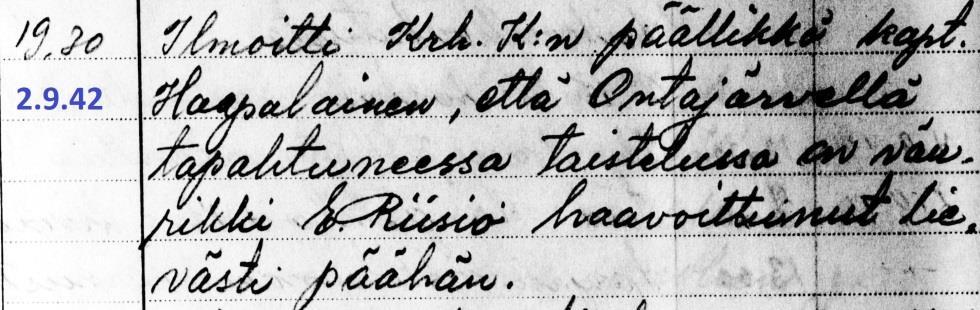 19,30 Ilmoitti Krh. K:n päällikkö kapt.
2.9.42 Haapalainen, että Ontajärvellä
tapahtuneessa taistelussa on vän-
rikki E. Riisiö haavoittunut lie-
västi päähän.